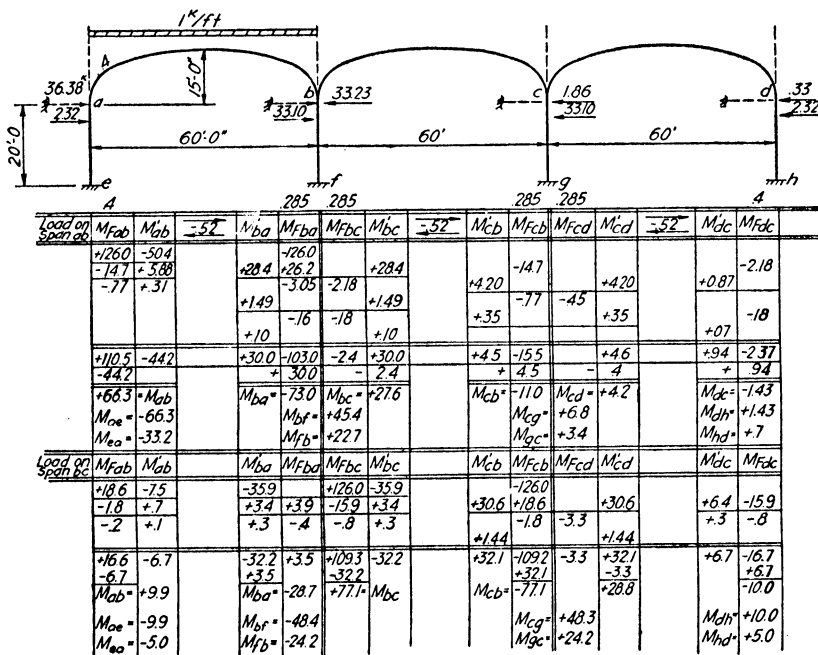 1ᴷ/ft
A
15'-0"
36.38ᴷ a b 33.23 c 1.86 d .33
2.32 33.10 33.10 2.32
20'-0 60'-0" 60' 60'
e f g h
.4 .285 .285 .285 .285 .4
Load on Span ab M_Fab M'ab -.52 M'ba M_Fba M_Fbc M'bc -.52 M'cb M_Fcb M_Fcd M'cd -.52 M'dc M_Fdc
+126.0 -50.4 -126.0
-14.7 +5.88 +28.4 +26.2 +28.4 -14.7 -2.18
-.77 +.31 -3.05 -2.18 +4.20 +4.20 +0.87
+1.49 +1.49 -.77 -.45
-.16 -.18 +.35 +.35 -.18
+.10 +.10 +.07
+110.5 -44.2 +30.0 -103.0 -2.4 +30.0 +4.5 -15.5 +4.6 +.94 -2.37
-44.2 + 30.0 - 2.4 + 4.5 - .4 + .94
+66.3 = Mab Mba = -73.0 Mbc = +27.6 Mcb = -11.0 Mcd = +4.2 Mdc = -1.43
Mae = -66.3 Mbf = +45.4 Mcg = +6.8 Mdh = +1.43
Mea = -33.2 Mfb = +22.7 Mgc = +3.4 Mhd = +.7
Load on Span bc M_Fab M'ab M'ba M_Fba M_Fbc M'bc M'cb M_Fcb M_Fcd M'cd M'dc M_Fdc
+18.6 -7.5 -35.9 +126.0 -35.9 -126.0
-1.8 +.7 +3.4 +3.9 -15.9 +3.4 +30.6 +18.6 +30.6 +6.4 -15.9
-.2 +.1 +.3 -.4 -.8 +.3 -1.8 -3.3 +.3 -.8
+1.44 +1.44
+16.6 -6.7 -32.2 +3.5 +109.3 -32.2 +32.1 -109.2 -3.3 +32.1 +6.7 -16.7
-6.7 +3.5 -32.2 +32.1 -3.3 +6.7
Mab = +9.9 Mba = -28.7 +77.1 = Mbc Mcb = -77.1 +28.8 -10.0
Mae = -9.9 Mbf = -48.4 Mcg = +48.3 Mdh = +10.0
Mea = -5.0 Mfb = -24.2 Mgc = +24.2 Mhd = +5.0